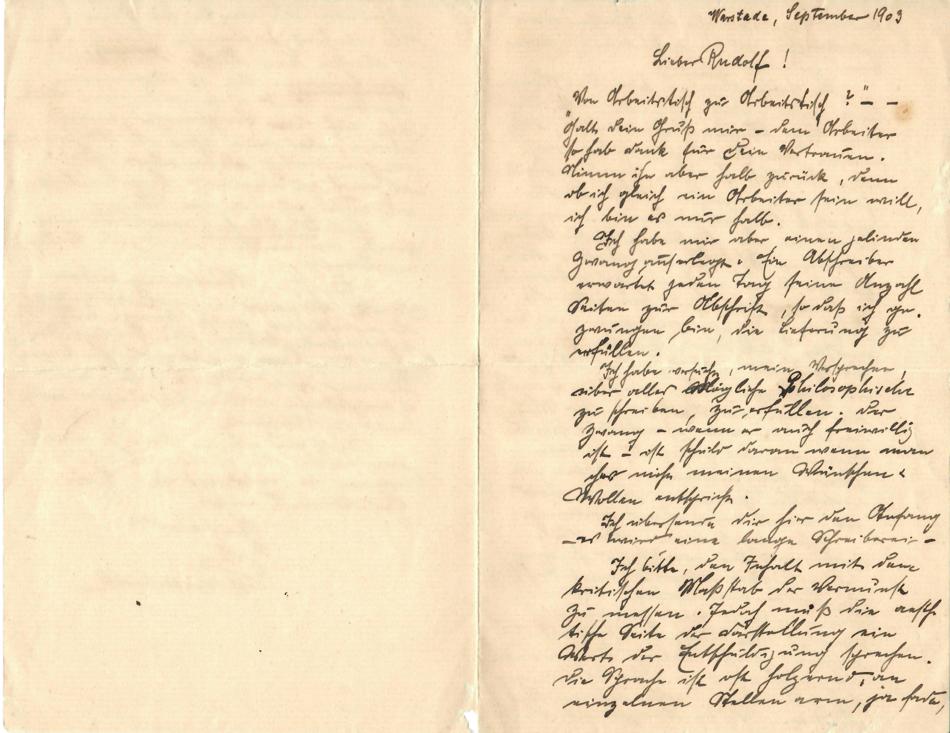 Warstade, September 1903
Lieber Rudolf!
"Von Arbeitstisch zu Arbeitstisch?" – –
Galt dein Gruß mir – dem Arbeiter
so hab dank für Dein Vertrauen.
Nimm ihn aber halb zurück, denn
ob ich gleich ein Arbeiter sein will,
ich bin es nur halb.
Ich habe mir aber einen gelinden
Zwang auferlegt. Ein Abschreiber
erwartet jeden Tag seine Anzahl
Seiten zur Abschrift, so daß ich ge-
zwungen bin, die Lieferung zu
erfüllen.
Ich habe versucht, mein Versprechen,
über alles Mögliche Philosophische
zu schreiben, zu erfüllen. Der
Zwang – wenn er auch freiwillig
ist – ist schuld daran wenn man
ches nicht meinen Wünschen &
Wollen entspricht.
Ich übersende dir hier den Anfang
– es wird eine lange Schreiberei –
Ich bitte, den Inhalt mit dem
kritischen Maßstab der Vernunft
zu messen. Jedoch muß die aesthe
tische Seite der Darstellung ein
Wort der Entschuldigung sprechen.
Die Sprache ist oft holzernd, an
einzelnen Stellen arm, ja fade,